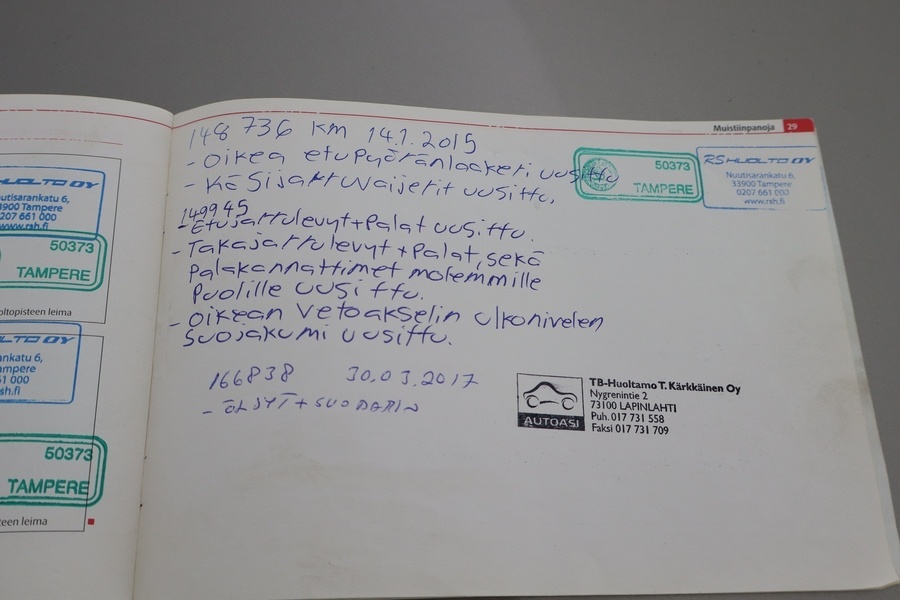 HUOLTO OY
utisarankatu 6,
3900 Tampere
0207 661 000
www.rsh.fi
50373
TAMPERE
oltopisteen leima
OLTO OY
ankatu 6,
ampere
51 000
sh.fi
50373
TAMPERE
steen leima
Muistiinpanoja 29
148 736 km 14.1.2015
- Oikea etupyöränlaakeri uusittu
- Käsijarruvaijerit uusittu.
149945
- Etujarrulevyt+Palat uusittu.
- Takajarrulevyt + Palat, sekä
Palakannattimet molemmille
Puolille uusittu.
- oikean Vetoakselin ulkonivelen
Suojakumi uusittu.
50373
TAMPERE
RS HUOLTO OY
Nuutisarankatu 6,
33900 Tampere
0207 661 000
www.rsh.fi
166838 30.03.2017
- ÖLJYT + SUODATIN
AUTOASI
TB-Huoltamo T. Kärkkäinen Oy
Nygrenintie 2
73100 LAPINLAHTI
Puh. 017 731 558
Faksi 017 731 709